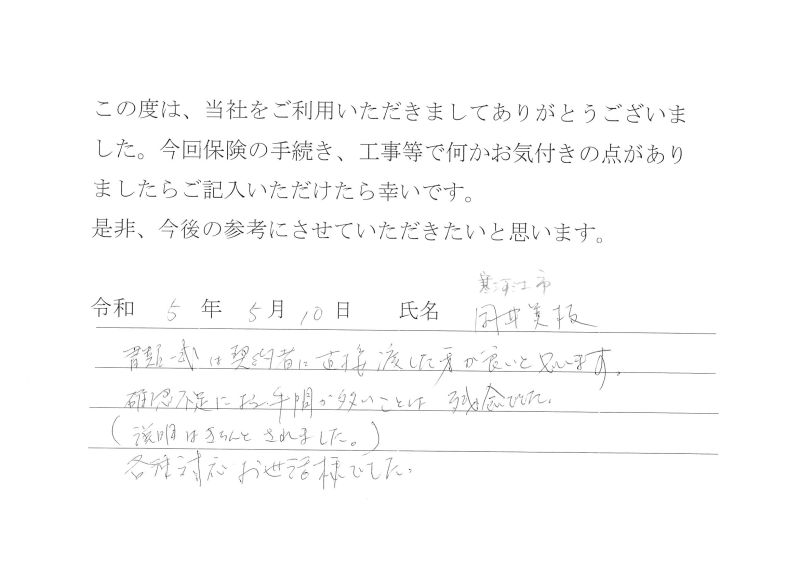 この度は、当社をご利用いただきましてありがとうございま
した。今回保険の手続き、工事等で何かお気付きの点があり
ましたらご記入いただけたら幸いです。
是非、今後の参考にさせていただきたいと思います。
寒河江市
令和 5 年 5 月 10 日 氏名
書類一式は契約者に直接渡した方が良いと思います。
確認不足による手間が多いことは残念でした。
(説明はきちんとされました。)
各種対応お世話様でした。